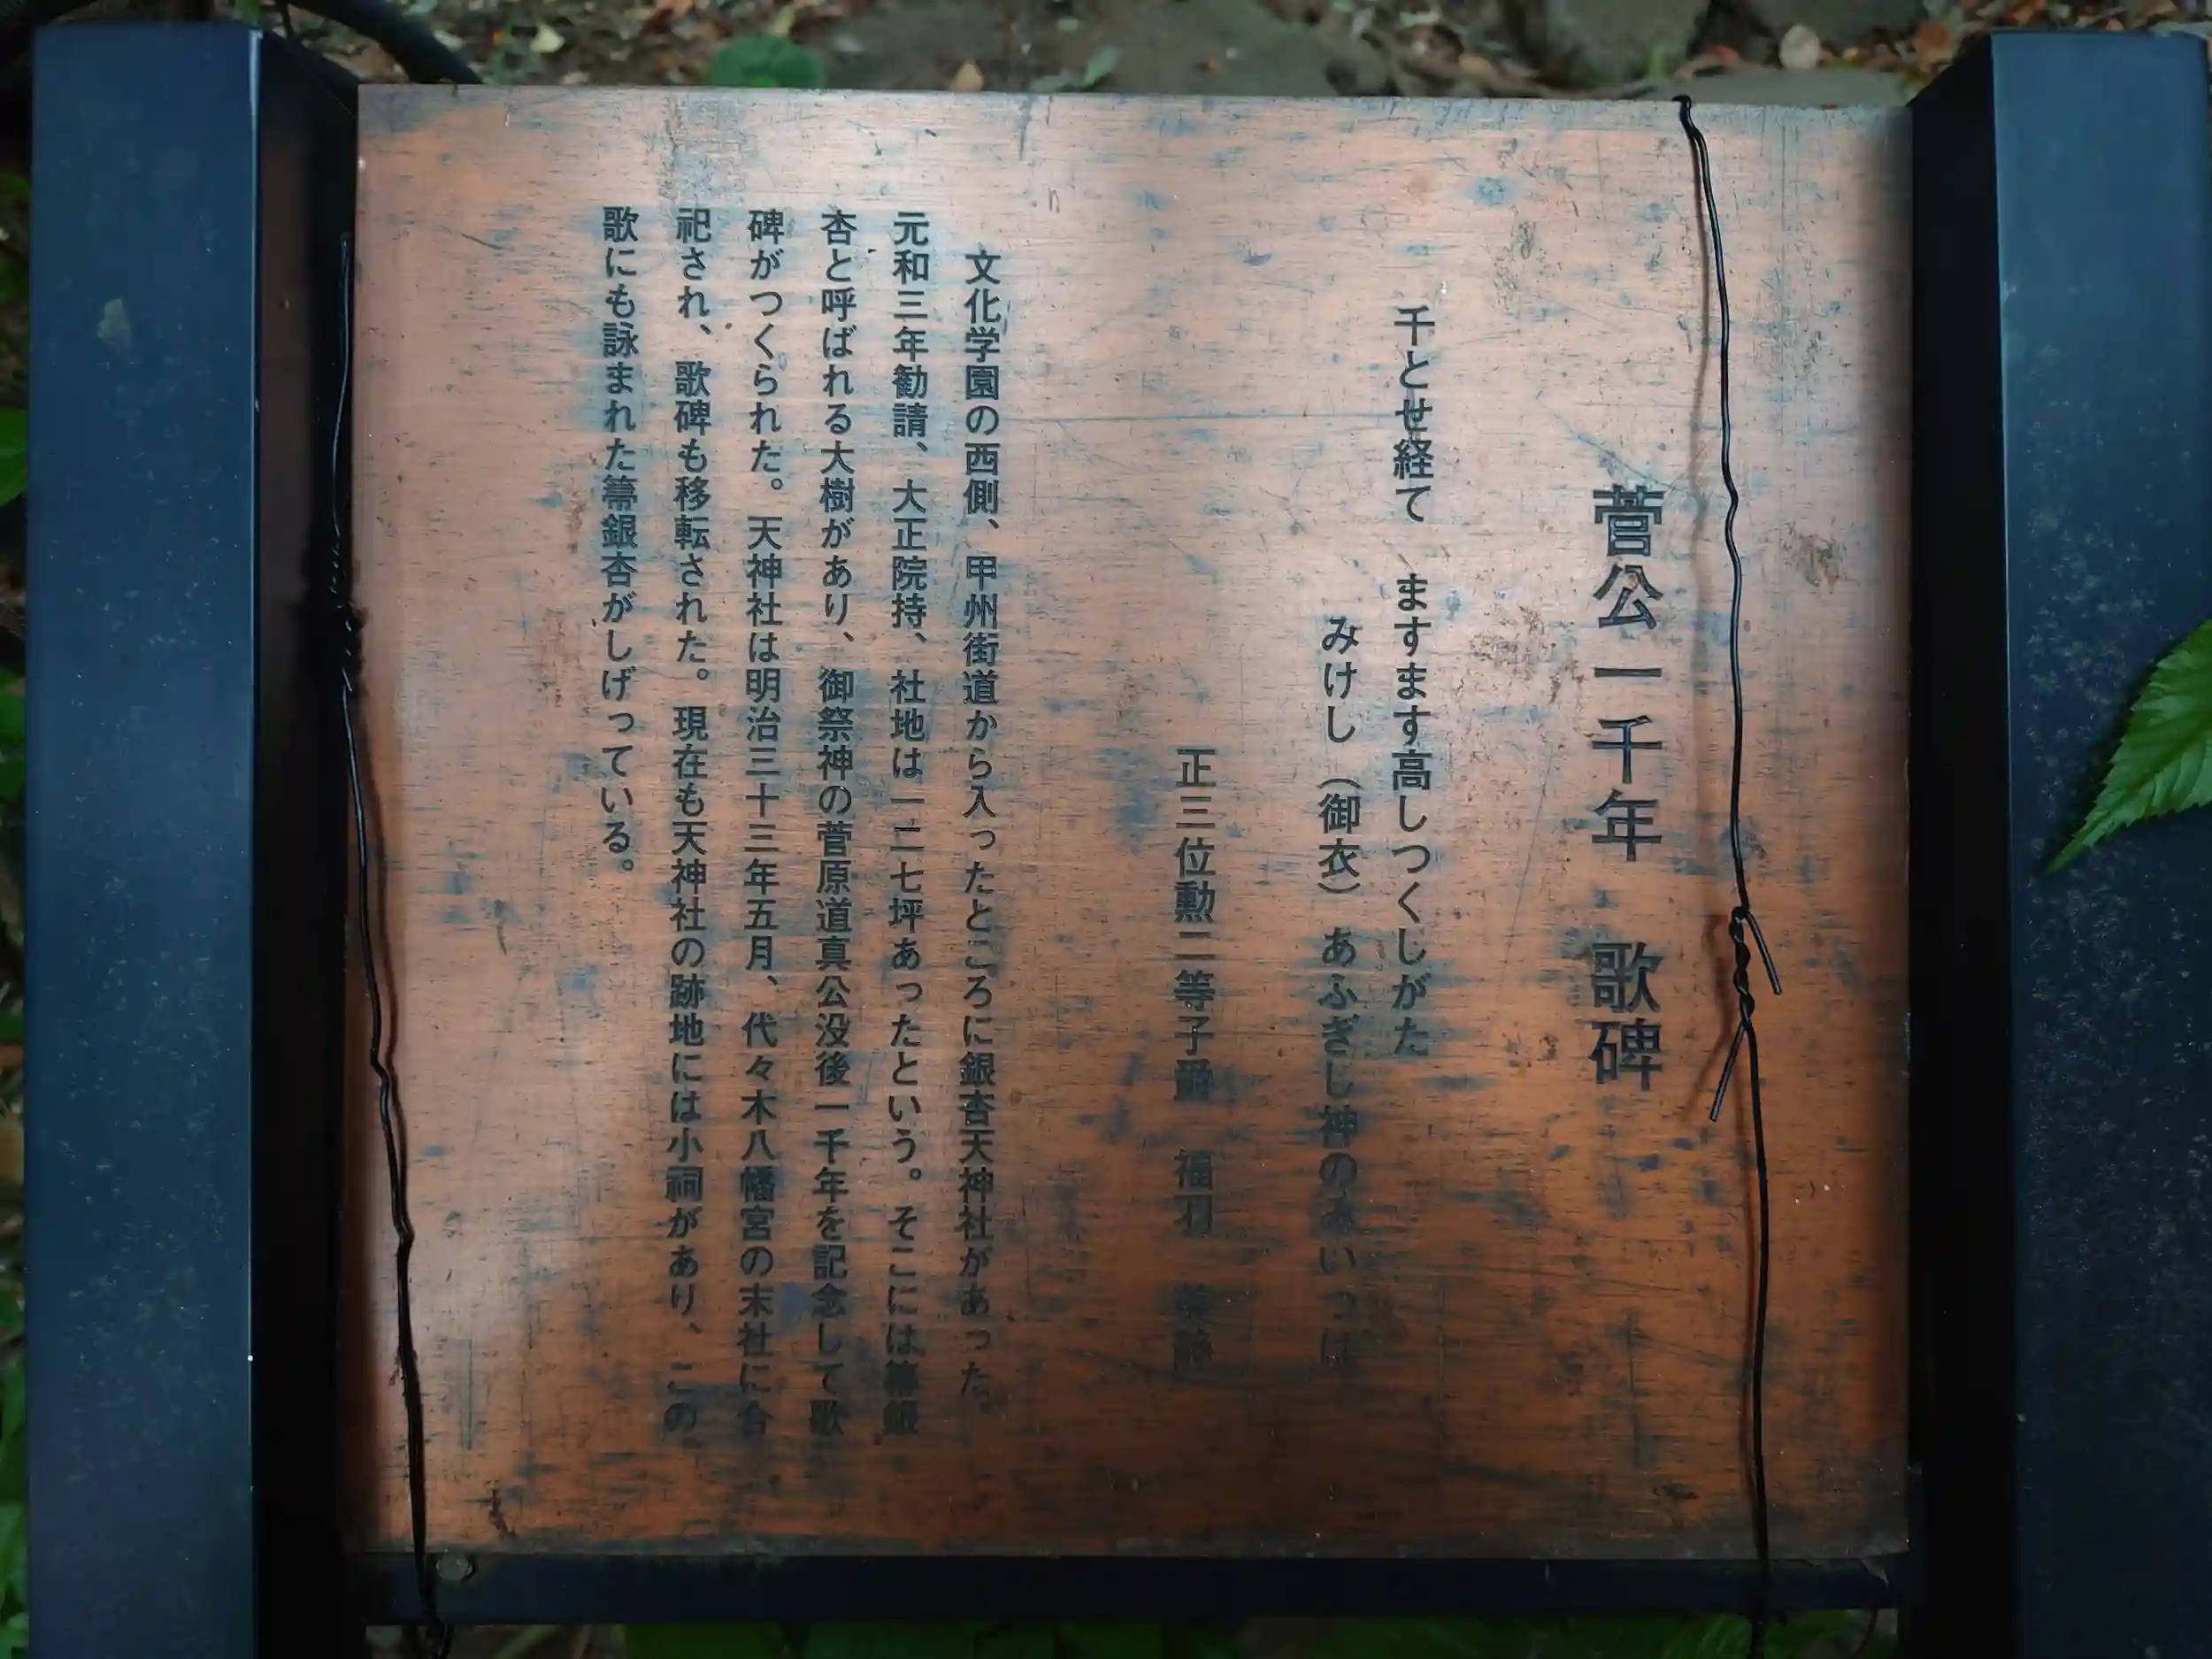 菅公一千年 歌碑
千とせ経て ますます高しつくしがた
みけし（御衣）あふぎし神のみいつは
正三位勲二等子爵 福羽 美静
文化学園の西側、甲州街道から入ったところに銀杏天神社があった。
元和三年勧請、大正院持、社地は一二七坪あったという。そこには箒銀
杏と呼ばれる大樹があり、御祭神の菅原道真公没後一千年を記念して歌
碑がつくられた。天神社は明治三十三年五月、代々木八幡宮の末社に合
祀され、歌碑も移転された。現在も天神社の跡地には小祠があり、この
歌にも詠まれた箒銀杏がしげっている。